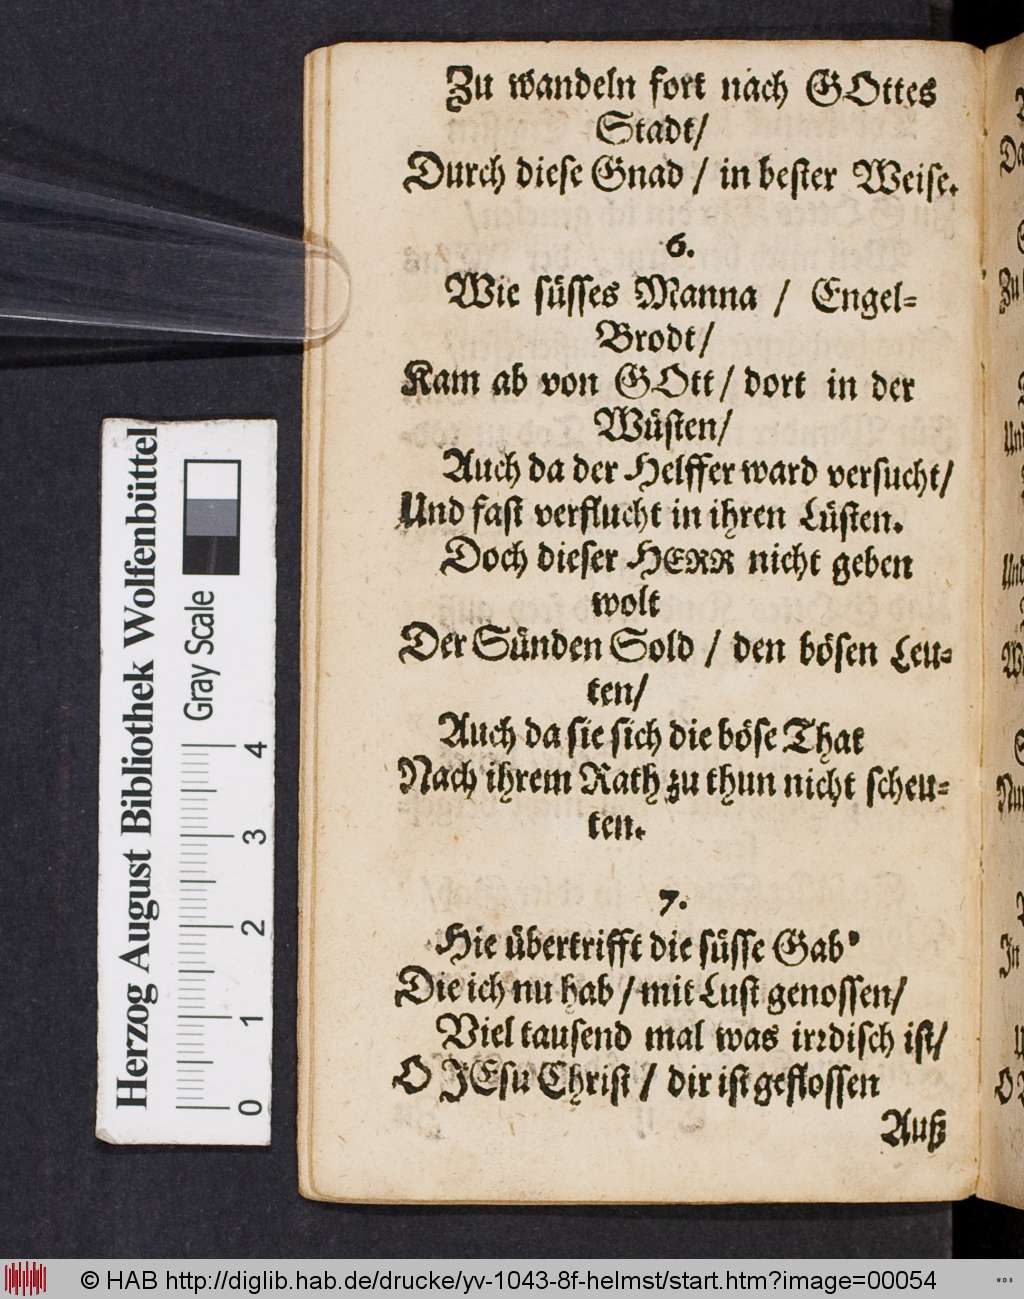 Zu wandeln fort nach GOttes
Stadt/
Durch diese Gnad / in bester Weise.
6.
Wie süsses Manna / Engel-
Brodt/
Kam ab von GOtt / dort in der
Wüsten/
Auch da der Helffer ward versucht/
Und fast verflucht in ihren Lüsten.
Doch dieser HERR nicht geben
wolt
Der Sünden Sold / den bösen Leu-
ten/
Auch da sie sich die böse That
Nach ihrem Rath zu thun nicht scheu-
ten.
7.
Hie übertrifft die süsse Gab'
Die ich nu hab / mit Lust genossen/
Viel tausend mal was irꝛdisch ist/
O JEsu Christ / dir ist geflossen
Auß
Herzog August Bibliothek Wolfenbüttel
Gray Scale
0 1 2 3 4
© HAB http://diglib.hab.de/drucke/yv-1043-8f-helmst/start.htm?image=00054
WDB